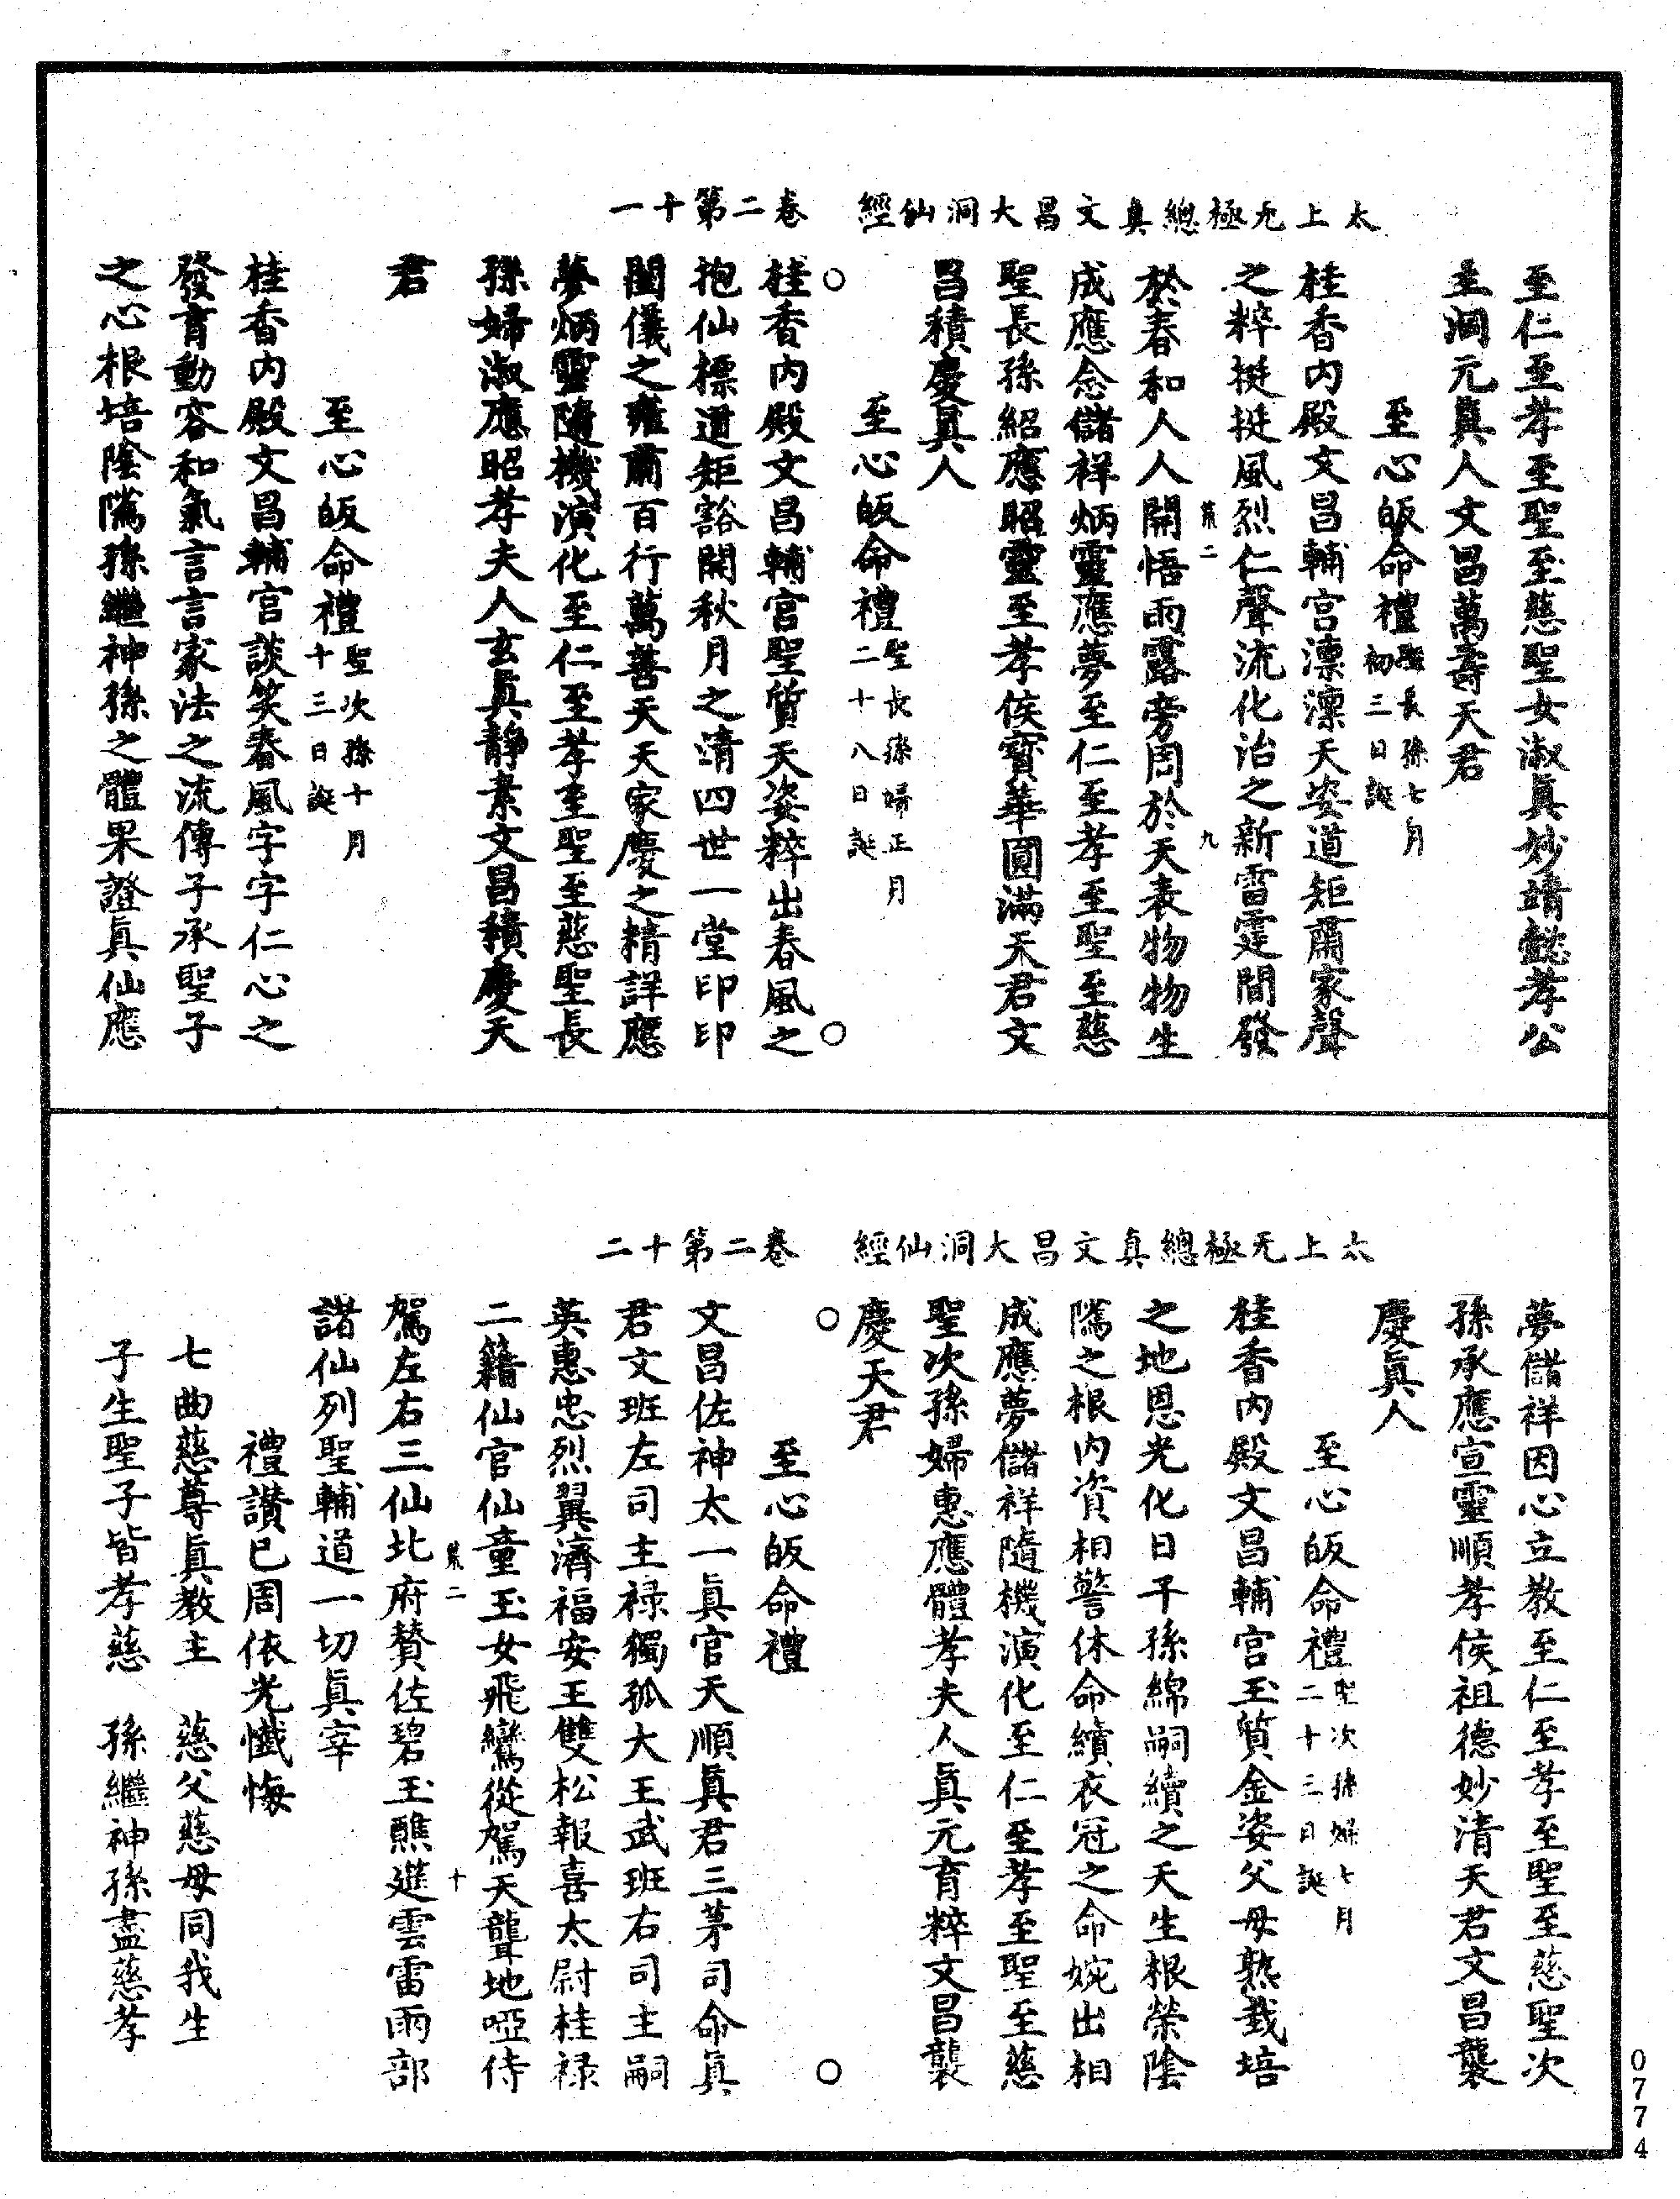 太上无極總真文昌大洞仙經　卷二第十一
至仁至孝至聖至慈聖女淑眞妙靖懿孝公
主洞元眞人文昌萬壽天君
至心皈命禮聖長孫七月初三日誕
桂香内殿文昌輔宫凛凛天姿道矩肅家聲
之粹挺挺風烈仁聲流化治之新雷霆間發
於春和人人開悟雨露旁周於天表物物生
荒二　九
成應念儲祥炳靈應夢至仁至孝至聖至慈
聖長孫紹應昭靈至孝侯寳華圓滿天君文
昌積慶眞人
至心皈命禮聖長孫婦正月二十八日誕
桂香内殿文昌輔宫聖質天姿粹出春風之
抱仙標道矩豁開秋月之清四世一堂印印
閨儀之雍肅百行萬善天天家慶之精詳應
夢炳靈隨機演化至仁至孝至聖至慈聖長
孫婦淑應昭孝夫人玄眞靜素文昌積慶天
君
至心皈命禮聖次孫十月十三日誕
桂香内殿文昌輔宫談笑春風字字仁心之
發育動容和氣言言家法之流傳子承聖子
之心根培陰隲孫繼神孫之體果證眞仙應
太上无極總真文昌大洞仙經　卷二第十二
夢儲祥因心立教至仁至孝至聖至慈聖次
孫承應宣靈順孝侯祖德妙清天君文昌襲
慶眞人
至心皈命禮聖次孫婦七月二十三日誕
桂香内殿文昌輔宫玉質金姿父母熟栽培
之地恩光化日千孫綿嗣續之天生根榮陰
隲之根内資相警休命續衣冠之命婉出相
成應夢儲祥隨機演化至仁至孝至聖至慈
聖次孫婦惠應體孝夫人眞元育粹文昌襲
慶天君
至心皈命禮
文昌佐神太一眞官天順眞君三茅司命眞
君文班左司主禄獨孤大王武班右司主嗣
英惠忠烈翼濟福安王雙松報喜太尉桂禄
二籍仙官仙童玉女飛鸞從駕天聾地啞侍
荒二　十
駕左右三仙北府贊佐碧玉醮進雲雷雨部
諸仙列聖輔道一切眞宰
禮讃已周依光懺悔
七曲慈尊眞教主　慈父慈母同我生
子生聖子皆孝慈　孫繼神孫盡慈孝
0774